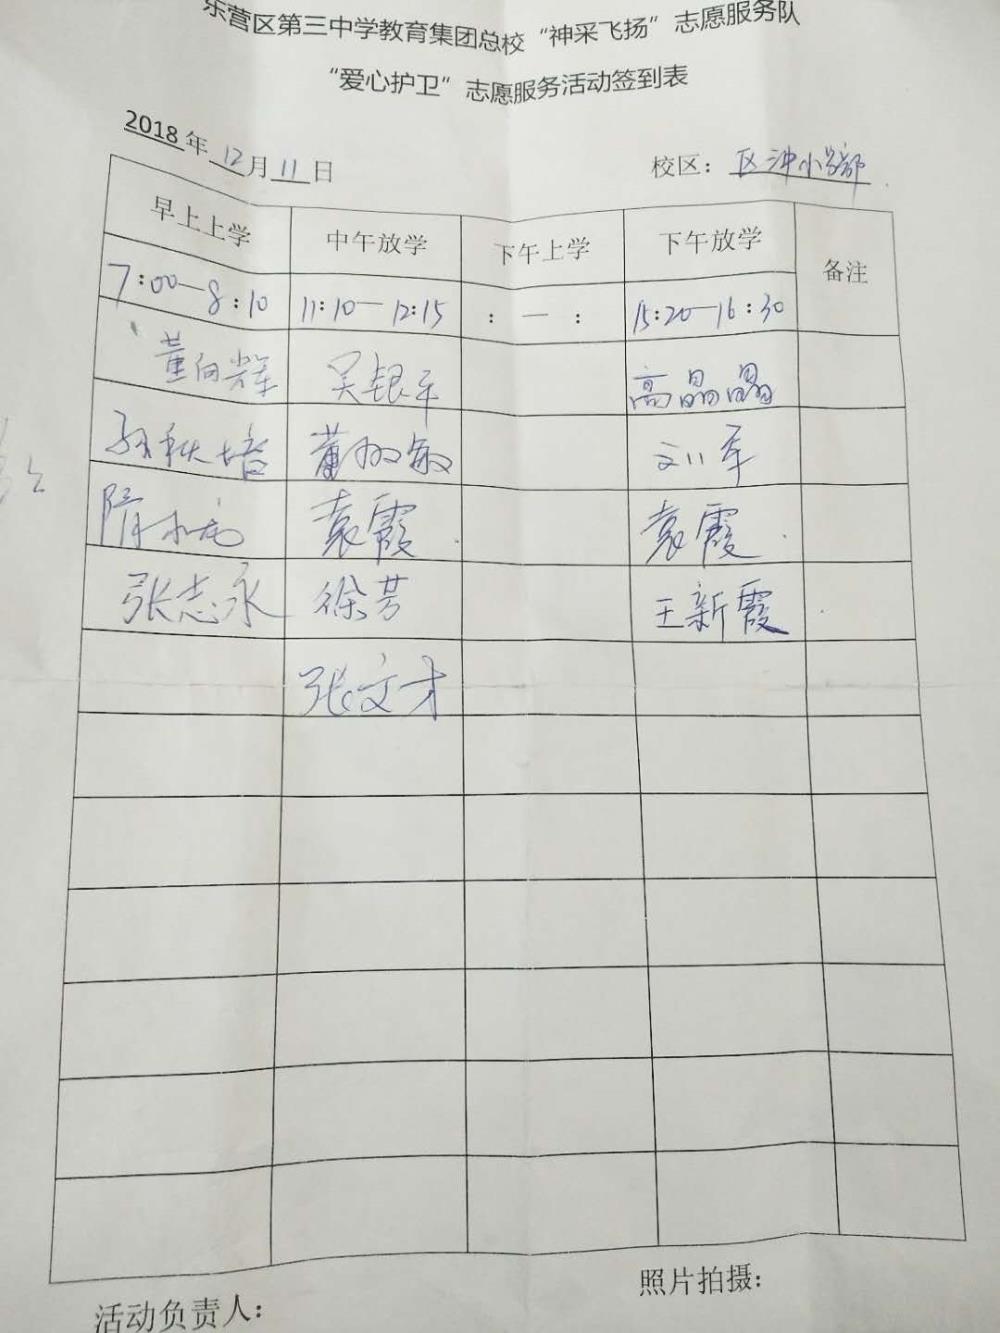 营区第三中学教育集团总校“神采飞扬”志愿服务队
“爱心护卫”志愿服务活动签到表
2018年12月11日 校区：小学部
早上上学 中午放学 下午上学 下午放学 备注
7:00—8:10 11:10—12:15 : — : 15:20—16:30
董向辉 吴银平 高晶晶
孙秋培 董敏 刘军
隋 袁霞 袁霞
张志永 徐芳 王新霞
张文才
活动负责人： 照片拍摄：